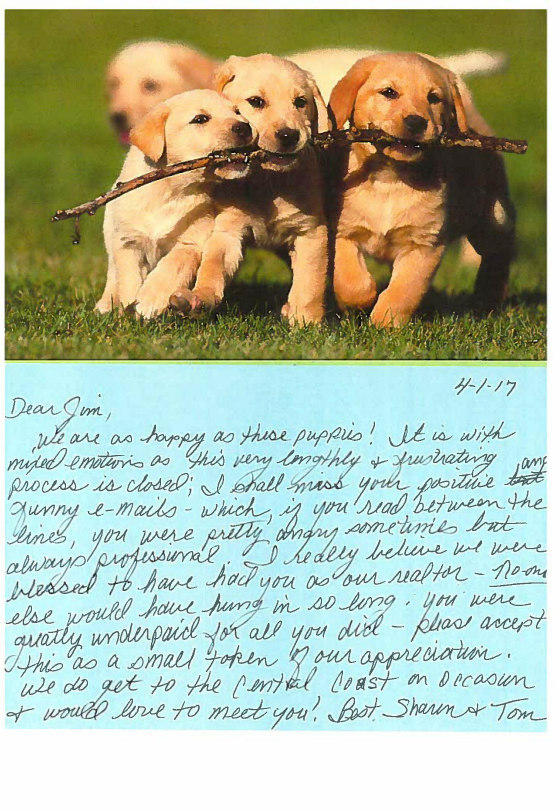 4-1-17
Dear Jim,
We are as happy as these puppies! It is with
mixed emotions as this very lengthly & frustrating
process is closed; I shall miss your positive and
funny e-mails - which, if you read between the
lines, you were pretty angry sometimes but
always professional. I really believe we were
blessed to have had you as our realtor - no-one
else would have hung in so long. You were
greatly underpaid for all you did - please accept
this as a small token of our appreciation.
We do get to the Central Coast on occasion
& would love to meet you! Best, Sharon & Tom